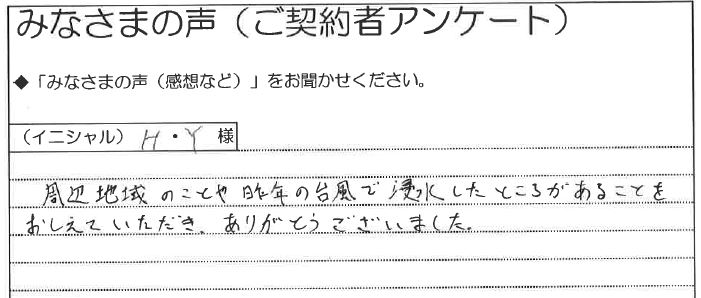 みなさまの声（ご契約者アンケート）
◆「みなさまの声（感想など）」をお聞かせください。
（イニシャル） H・Y 様
周辺地域のことや昨年の台風で浸水したところがあることを
おしえていただき、ありがとうございました。